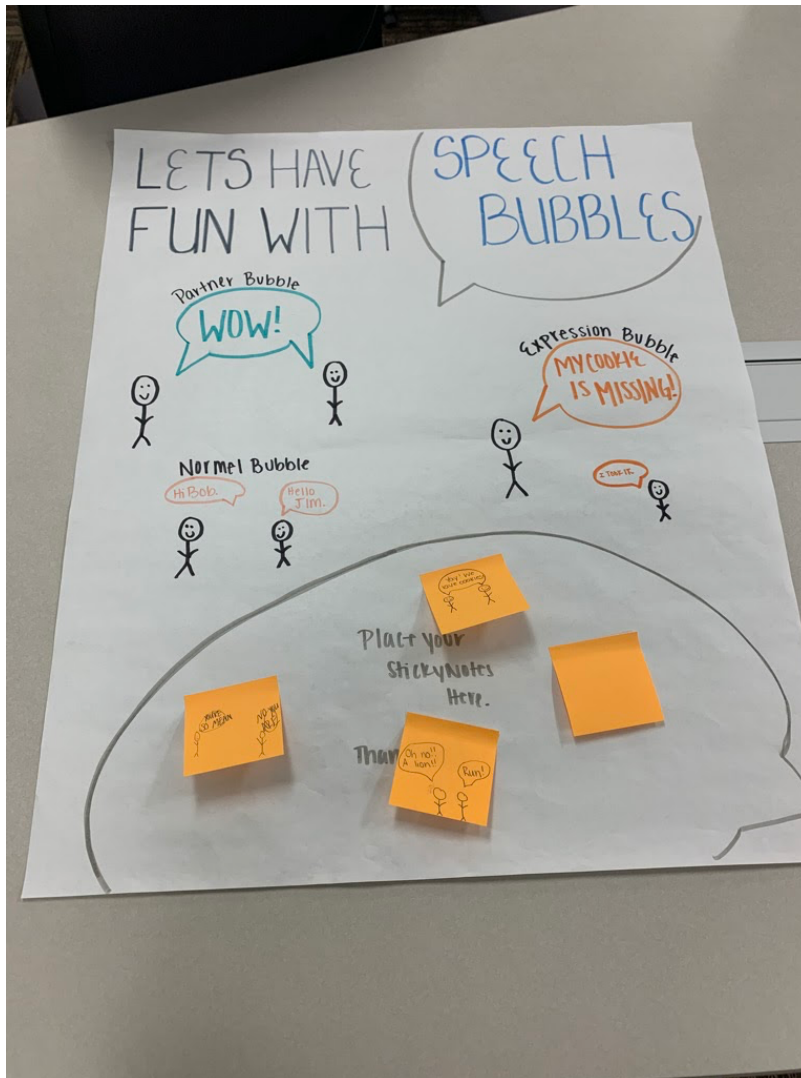 LETS HAVE
FUN WITH
SPEECH
BUBBLES
Partner Bubble
WOW!
Expression Bubble
MY COOKIE
IS MISSING!
I TOOK IT.
Normel Bubble
Hi Bob.
Hello
JIM.
Place your
StickyNotes
Here.
Yay! We
have cookies!
YOUR
SO MEAN
NO YOU
ARE
Than
Oh no!!
A lion!!
Run!